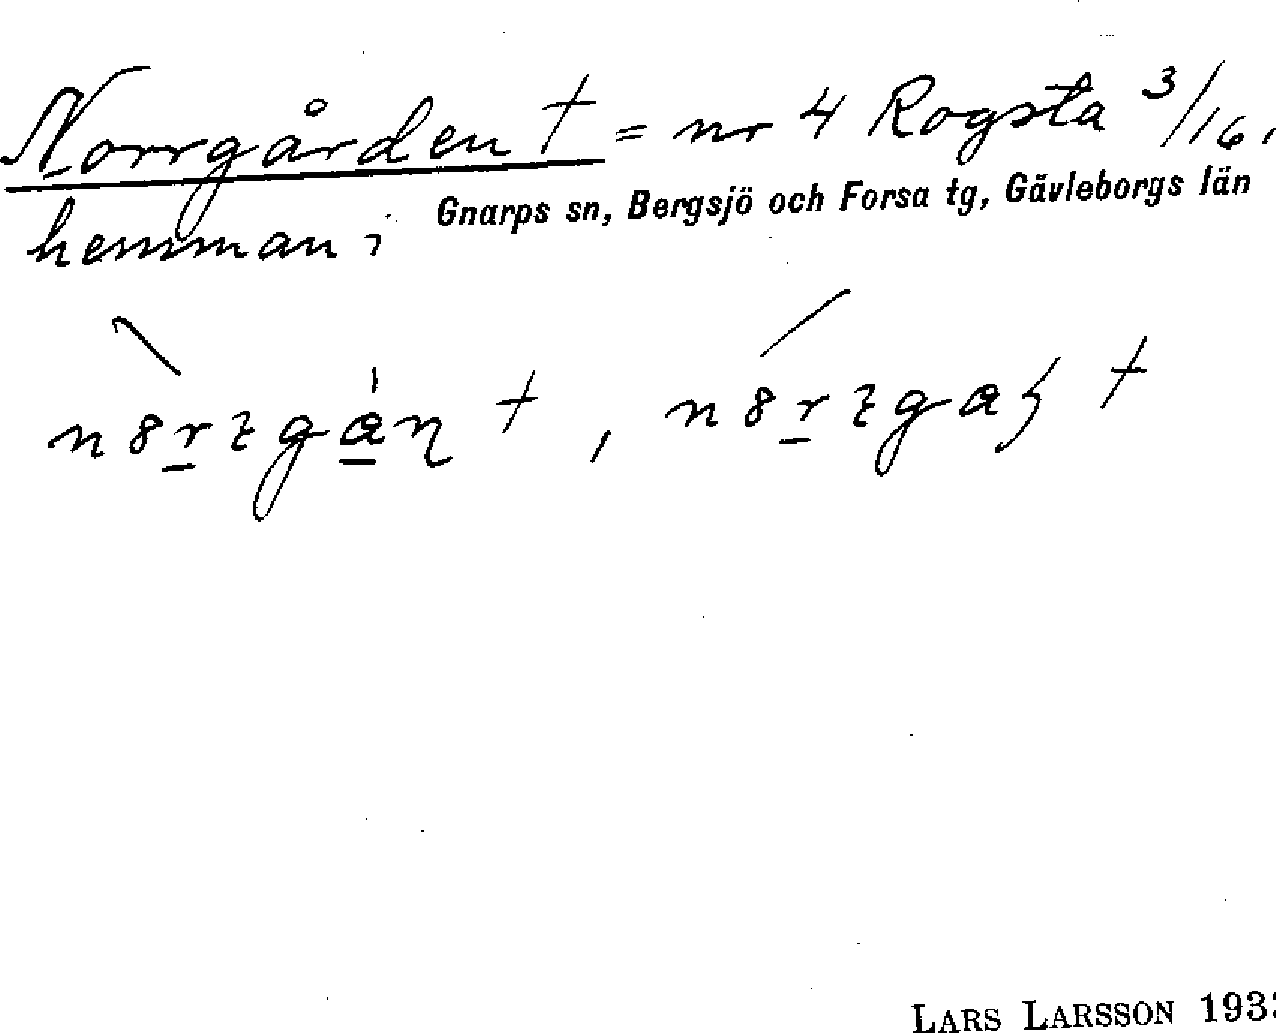 Norrgården † = nr 4 Rogsta 3/16,
Gnarps sn, Bergsjö och Forsa tg, Gävleborgs län
hemman i
LARS LARSSON 193